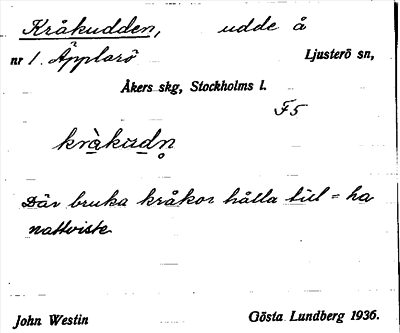 Kråkudden, udde å
nr 1. Äpplarö Ljusterö sn,
Åkers skg, Stockholms l.
F5
kràkudn̥
Där bruka kråkor hålla till = ha
nattviste
John Westin Gösta Lundberg 1936.